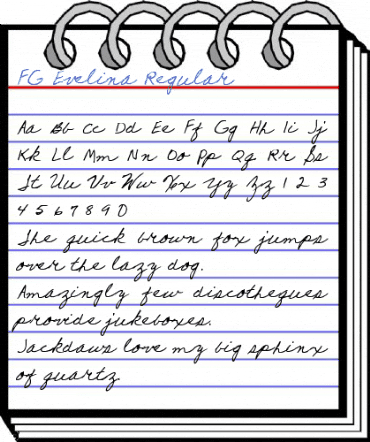 FG Evelina Regular
Aa Bb Cc Dd Ee Ff Gg Hh Ii Jj
Kk Ll Mm Nn Oo Pp Qq Rr Ss
Tt Uu Vv Ww Xx Yy Zz 1 2 3
4 5 6 7 8 9 0
The quick brown fox jumps
over the lazy dog.
Amazingly few discotheques
provide jukeboxes.
Jackdaws love my big sphinx
of quartz